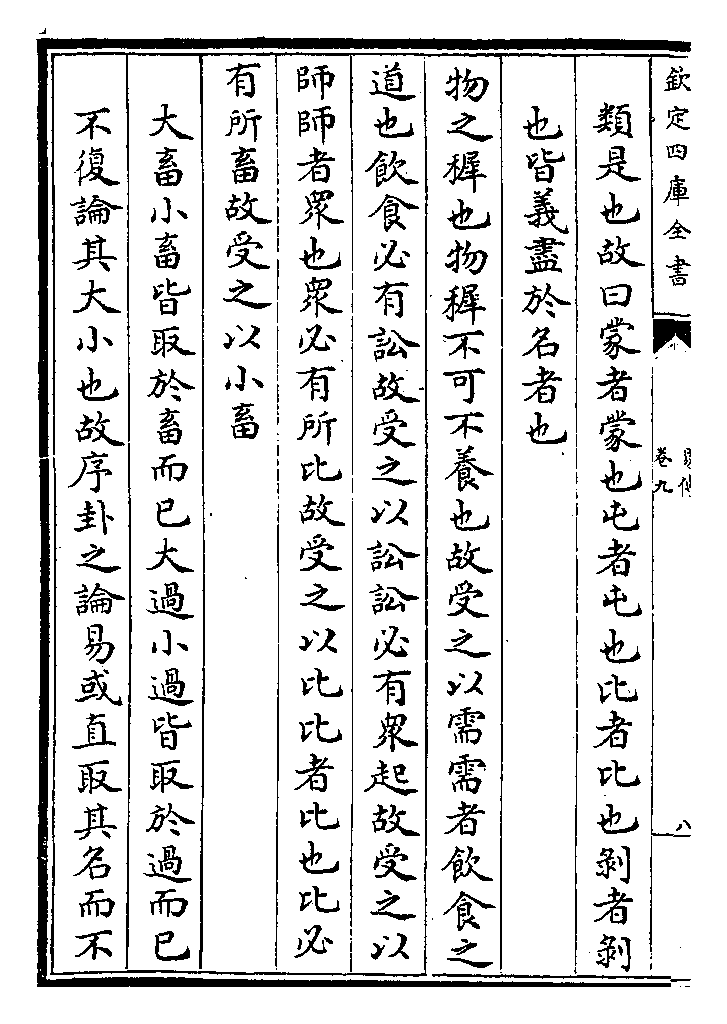 欽定四庫全書
卷九
八
類是也故曰蒙者蒙也屯者屯也比者比也剝者剝
也皆義盡於名者也
物之穉也物穉不可不養也故受之以需需者飲食之
道也飲食必有訟故受之以訟訟必有眾起故受之以
師師者眾也眾必有所比故受之以比比者比也比必
有所畜故受之以小畜
大畜小畜皆取於畜而已大過小過皆取於過而已
不復論其大小也故序卦之論易或直取其名而不